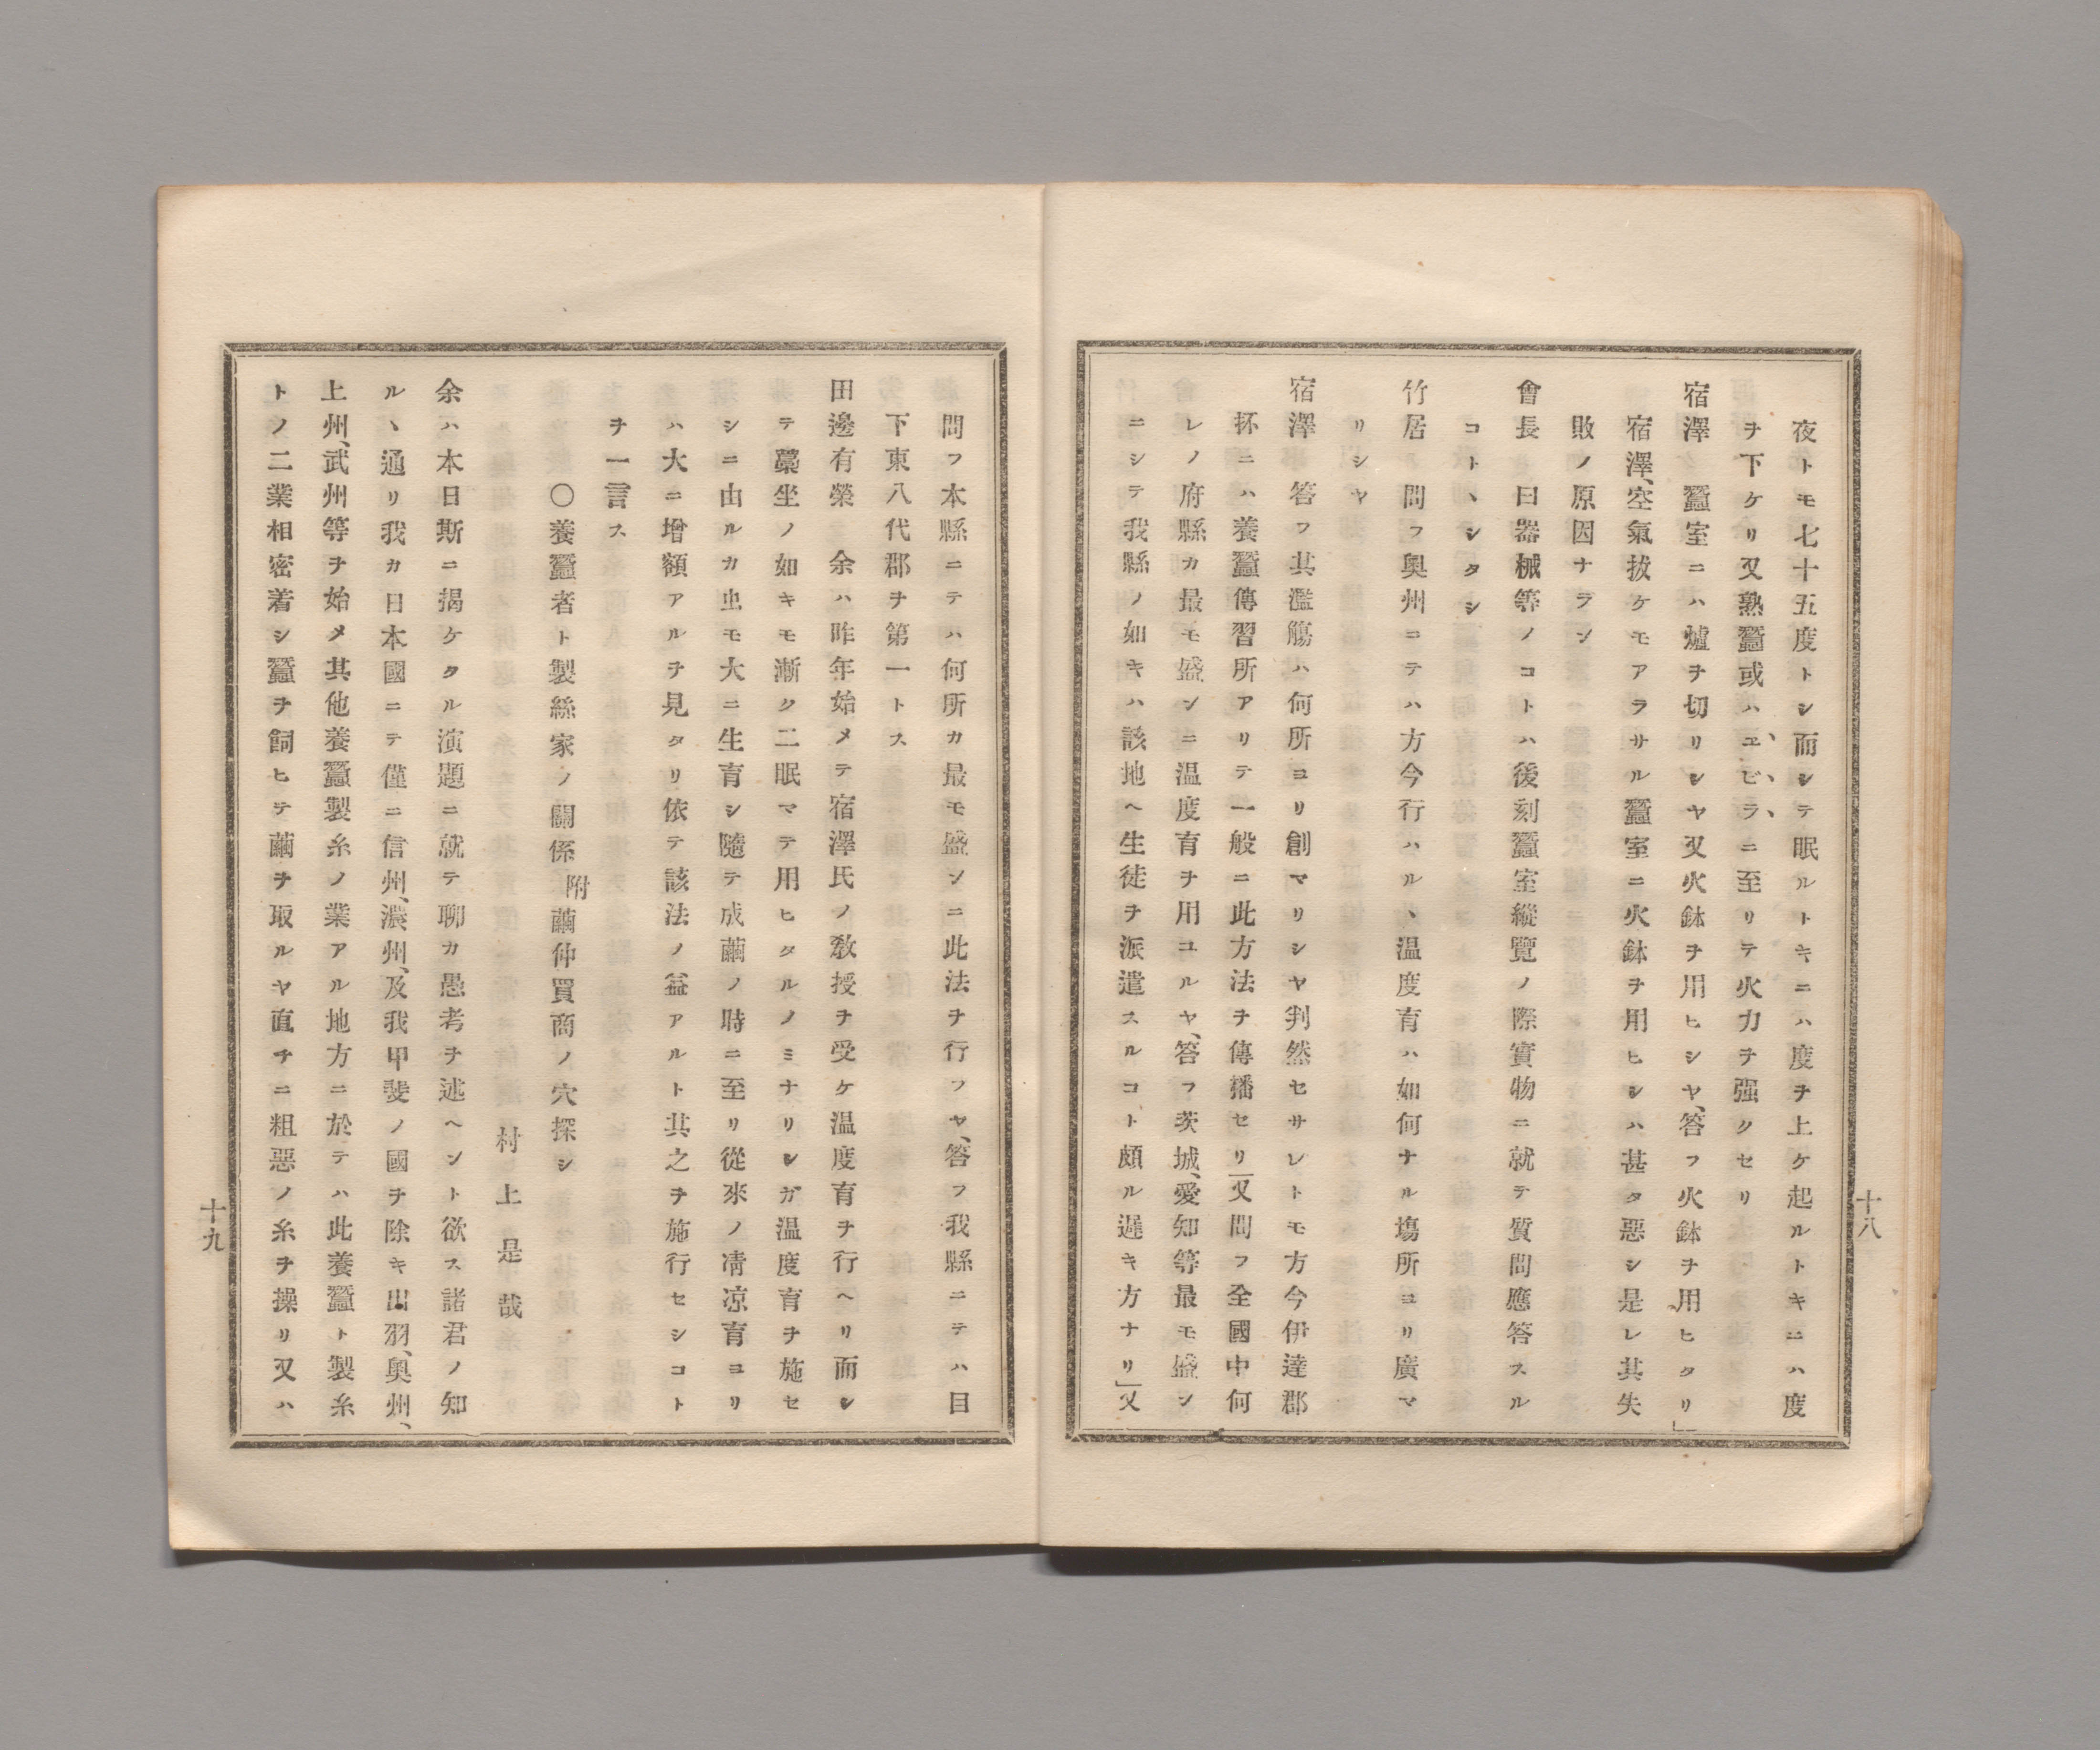 夜トモ七十五度トシ而シテ眠ルトキニハ度ヲ上ケ起ルトキニハ度
ヲ下ケリ又熟蠶或ハエビラニ至リテ火力ヲ强クセリ
宿澤　蠶室ニハ爐ヲ切リシヤ又火鉢ヲ用ヒシヤ、答フ火鉢ヲ用ヒタリ」
宿澤、空氣拔ケモアラサル蠶室ニ火鉢ヲ用ヒシハ甚タ惡シ是レ其失
敗ノ原因ナラン
會長曰器械等ノコトハ後刻蠶室縱覽ノ際實物ニ就テ質問應答スル
コトヽシタシ
竹居　問フ奧州ニテハ方今行ハルヽ温度育ハ如何ナル塲所ヨリ廣マ
リシヤ
宿澤　答フ其濫觴ハ何所ヨリ創マリシヤ判然セサレトモ方今伊達郡
抔ニハ養蠶傳習所アリテ一般ニ此方法ヲ傳播セリ」又問フ全國中何
レノ府縣カ最モ盛ンニ温度育ヲ用ユルヤ、答フ茨城、愛知等最モ盛ン
ニシテ我縣ノ如キハ該地ヘ生徒ヲ派遣スルコト頗ル遲キ方ナリ」又
十八
問フ本縣ニテハ何所カ最モ盛ンニ此法ヲ行フヤ、答フ我縣ニテハ目
下東八代郡ヲ第一トス
田邊有榮　余ハ昨年始メテ宿澤氏ノ敎授ヲ受ケ温度育ヲ行ヘリ而シ
テ藁坐ノ如キモ漸ク二眠マテ用ヒタルノミナリシガ温度育ヲ施セ
シニ由ルカ虫モ大ニ生育シ隨テ成繭ノ時ニ至リ從來ノ凊凉育ヨリ
ハ大ニ增額アルヲ見タリ依テ該法ノ益アルト其之ヲ施行セシコト
ヲ一言ス
〇養蠶者ト製絲家ノ關係附繭仲買商ノ穴探シ
村上是哉
余ハ本日斯ニ揭ケタル演題ニ就テ聊カ愚考ヲ述ヘント欲ス諸君ノ知
ルヽ通リ我カ日本國ニテ僅ニ信州、濃州、及我甲斐ノ國ヲ除キ出羽、奧州、
上州、武州等ヲ始メ其他養蠶製糸ノ業アル地方ニ於テハ此養蠶ト製糸
トノ二業相密着シ蠶ヲ飼ヒテ繭ヲ取ルヤ直チニ粗惡ノ糸ヲ操リ又ハ
十九